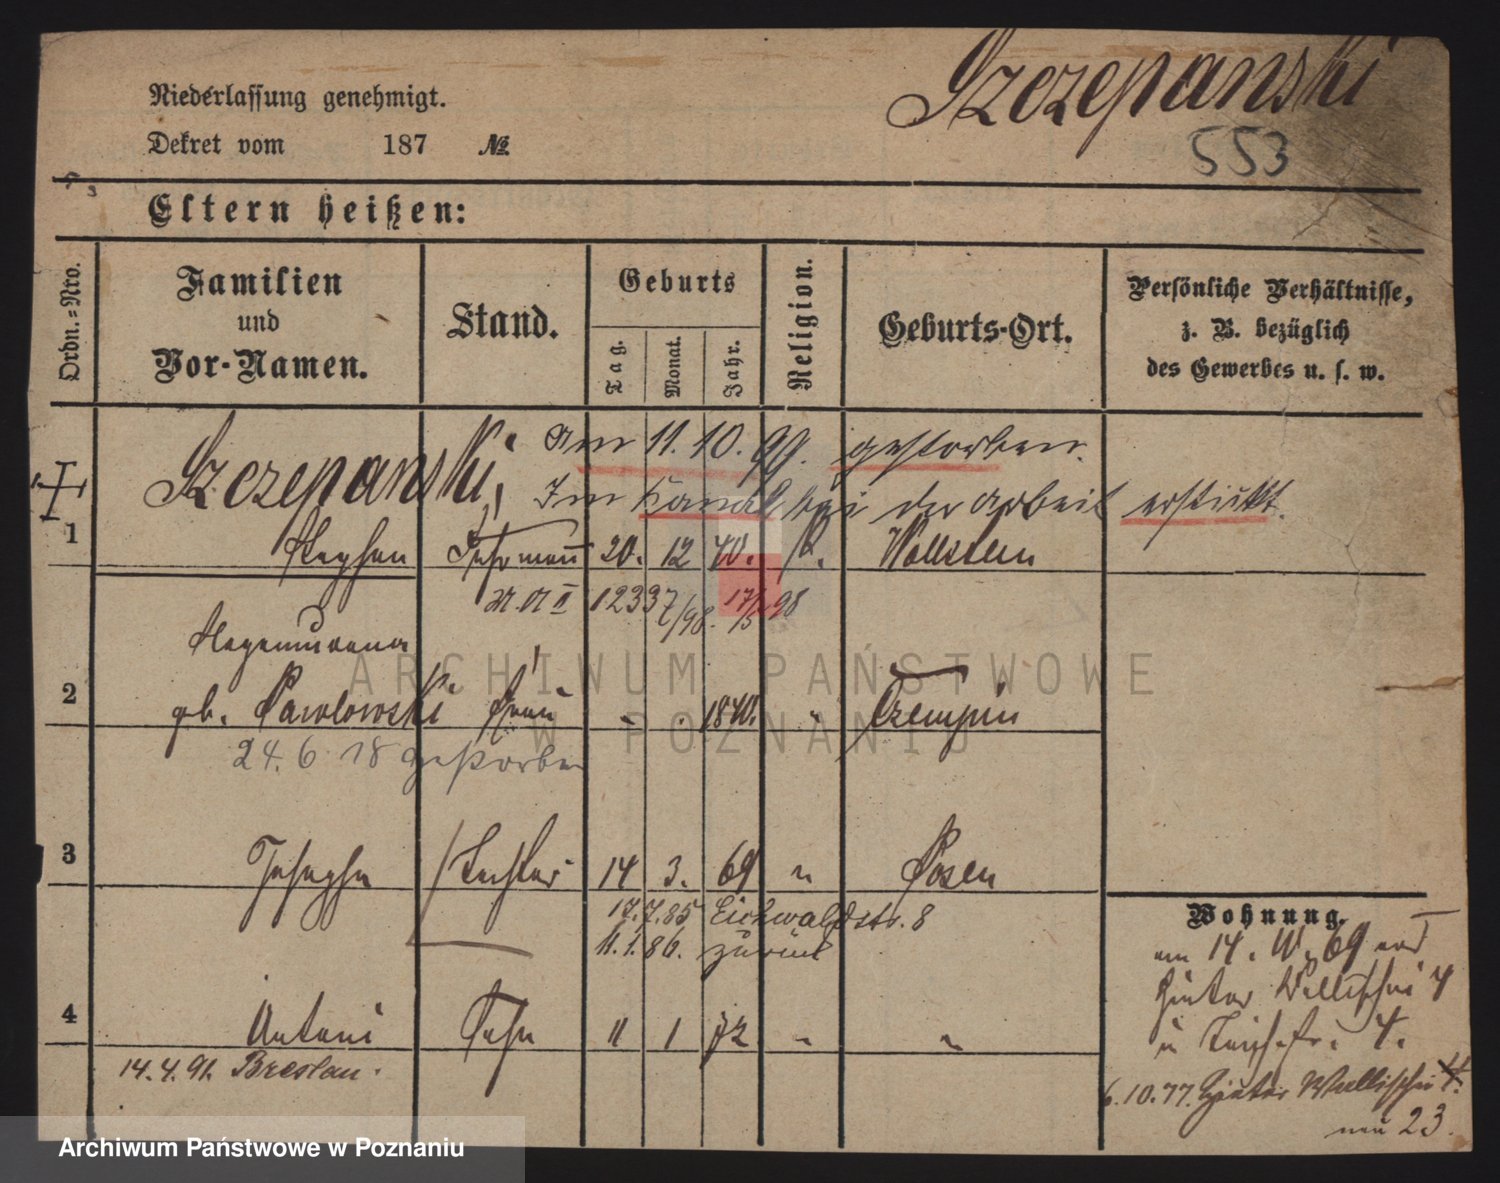 Szczepanski
553
Niederlassung genehmigt.
Dekret vom 187 №
Eltern heißen:
Ordn.=Nro.
Familien und Vor-Namen.
Stand.
Geburts
Tag. Monat. Jahr.
Religion.
Geburts-Ort.
Persönliche Verhältnisse, z. B. bezüglich des Gewerbes u. s. w.
Szczepanski, Am 11. 10. 99. gestorben.
Im Kanal bei der Arbeit erstickt.
1 Stephan 20. 12 40. k. Wollstein
12337/98. 98
2 Pawlowski Frau - . 1840. " Czempin
24. 6. 18 gestorben
3 Josepha Tochter 14 3. 69 " Posen
17.7.85 Eichwaldstr. 8
11.1.86. zurück
4 Antoni Sohn 11 1 72 " "
14.4.91. Breslau.
Wohnung.
am 14. 69
Hinter Wallischei 4
6.10.77. Hinter Wallischei 4.
neu 23.
ARCHIWUM PAŃSTWOWE
W POZNANIU
Archiwum Państwowe w Poznaniu